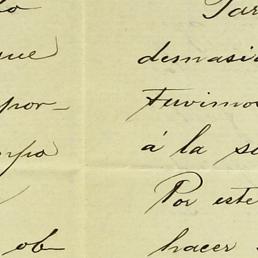 ue
por-
ob
Tar
demasia
Tuvimo
á la se
Por este
hacer